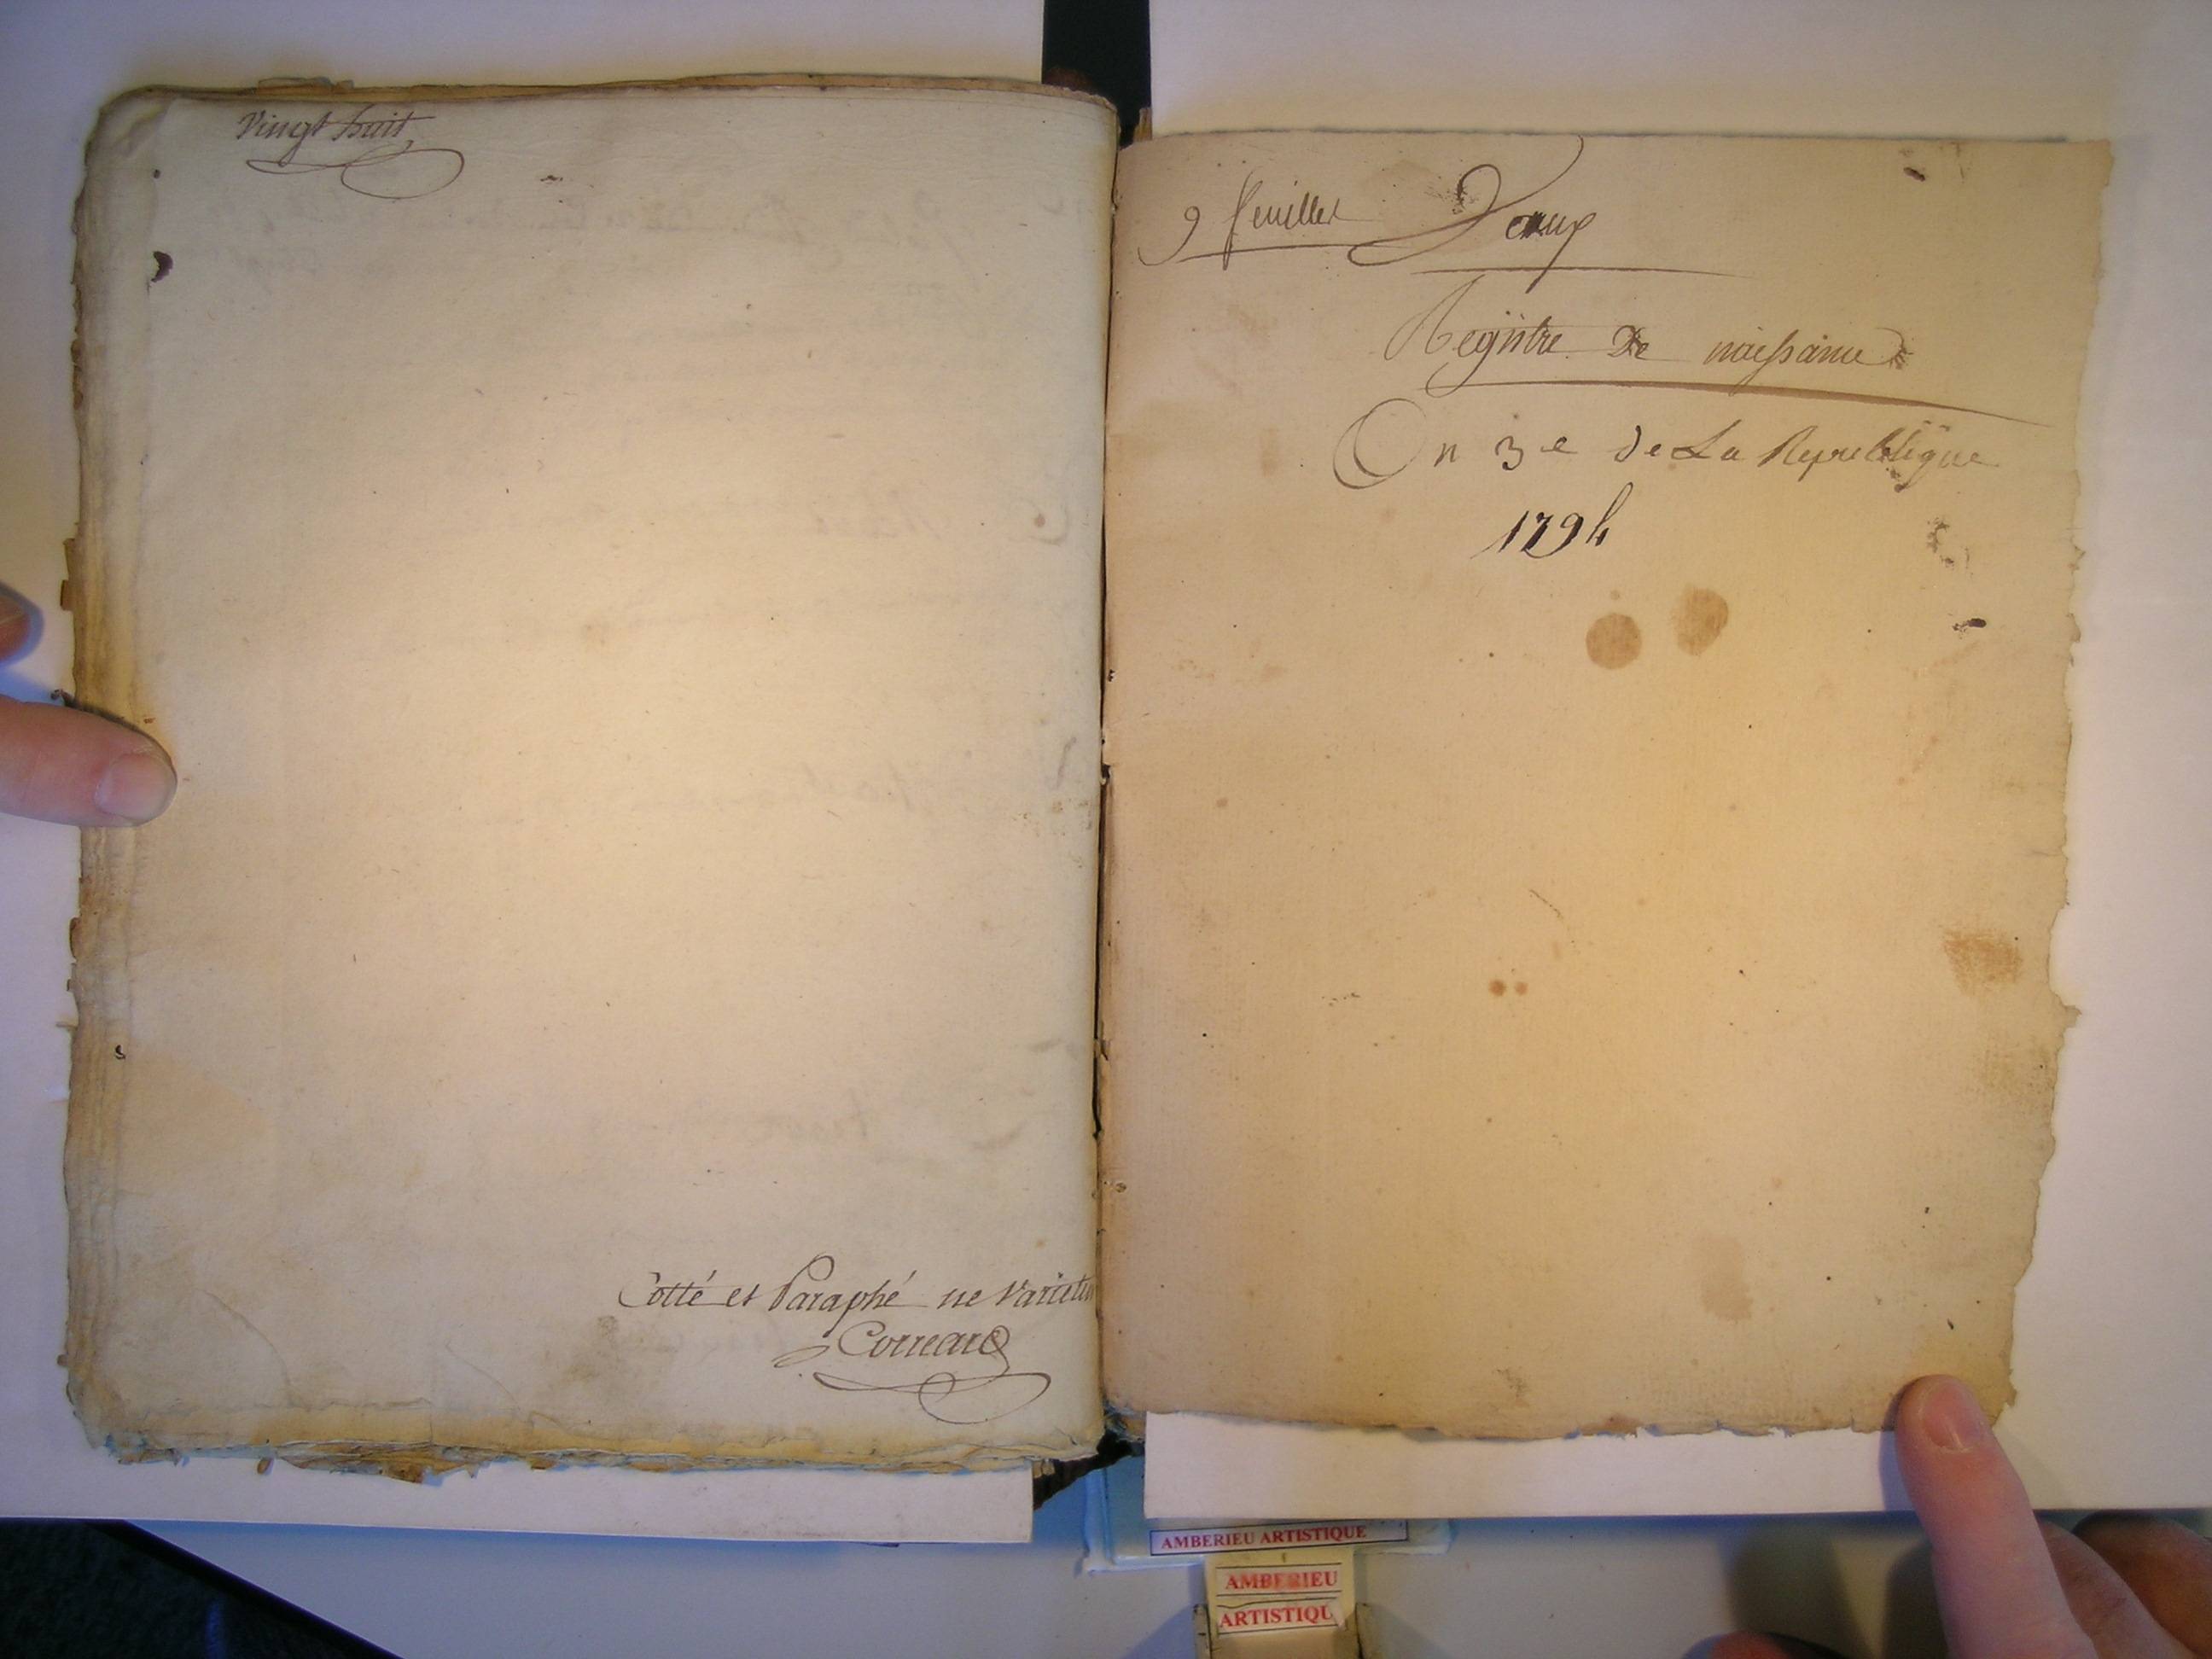 Vingt huit
Cotté et Paraphé ne Varietur
Correard
9 feuillet
Registre De naissance
An 3e de La Republique
1794
AMBERIEU ARTISTIQUE
AMBERIEU
ARTISTIQU